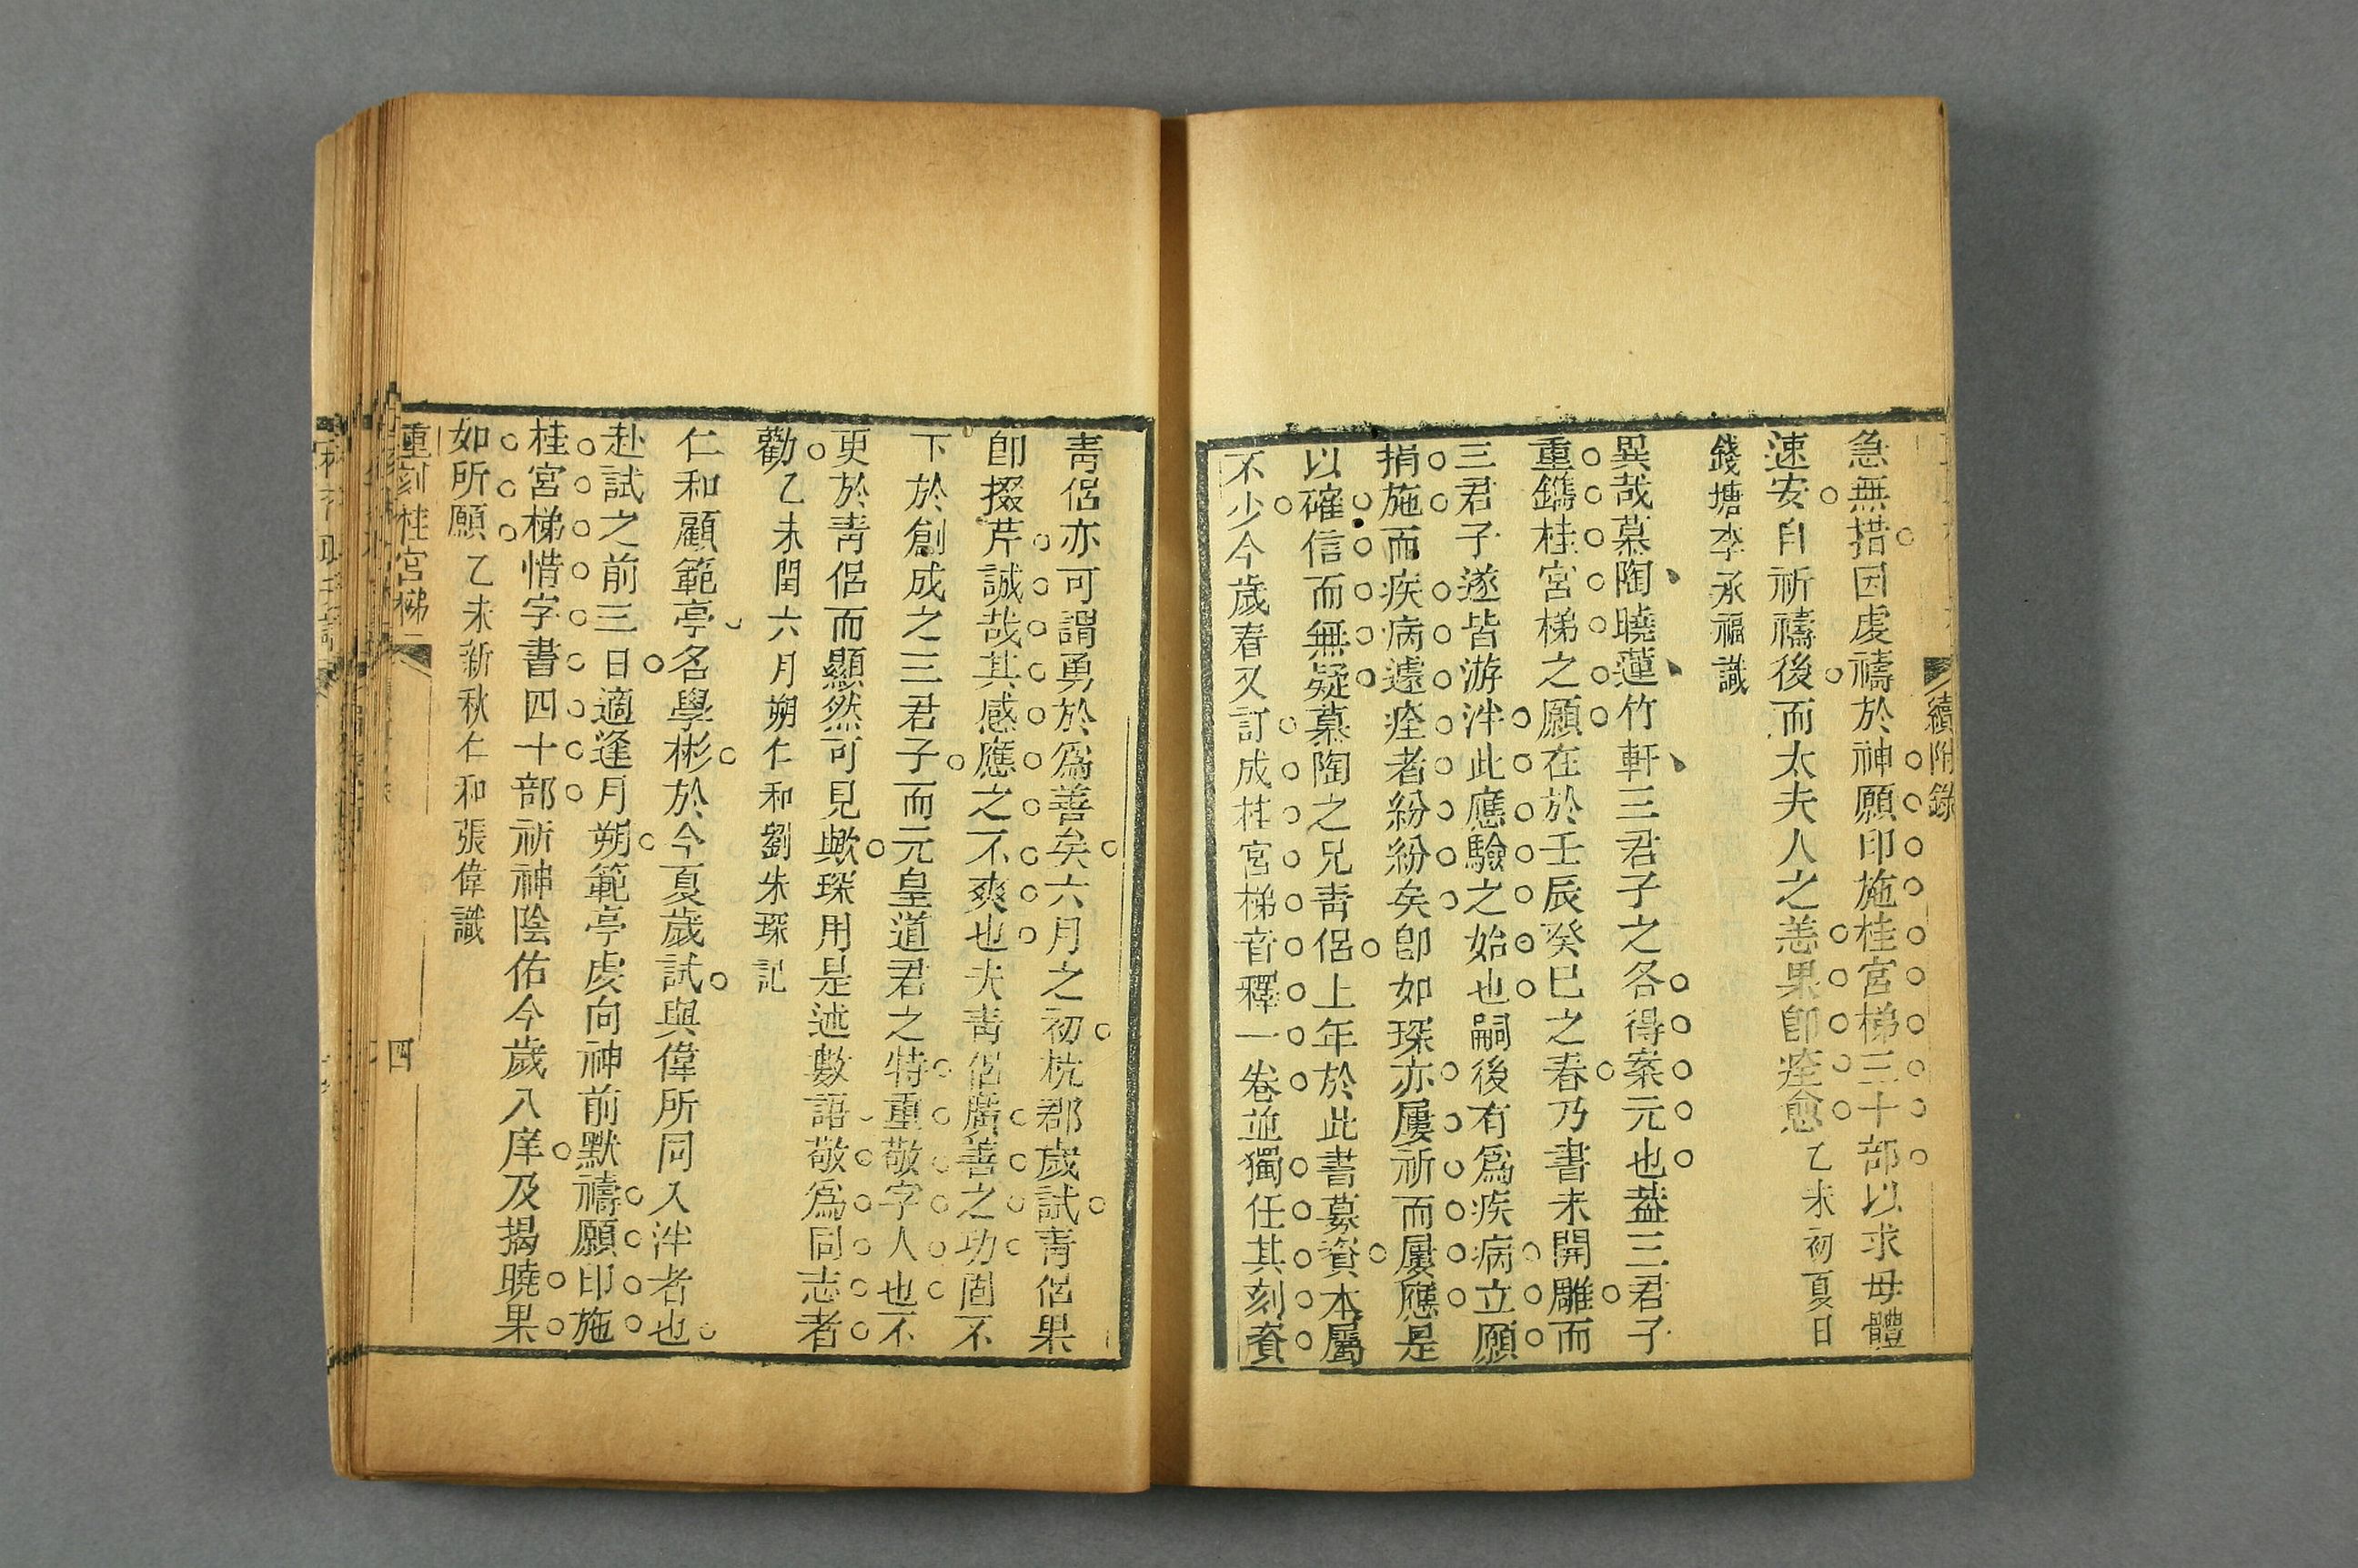 續附錄
急無措因虔禱於神願印施桂宮梯三十部以求母體
速安自祈禱後而太夫人之恙果卽痊愈乙未初夏日
錢塘李承福識
異哉慕陶曉蓮竹軒三君子之各得案元也葢三君子
重鐫桂宮梯之願在於壬辰癸巳之春乃書未開雕而
三君子遂皆游泮此應驗之始也嗣後有爲疾病立願
捐施而疾病遽痊者紛紛矣卽如琛亦屢祈而屢應是
以確信而無疑慕陶之兄靑侣上年於此書募資本屬
不少今歲春又訂成桂宮梯音釋一卷並獨任其刻資
靑侣亦可謂勇於爲善矣六月之初杭郡歲試靑侣果
卽掇芹誠哉其感應之不爽也夫靑侣廣善之功固不
下於創成之三君子而元皇道君之特重敬字人也不
更於靑侣而顯然可見歟琛用是述數語敬爲同志者
勸乙未閏六月朔仁和劉朱琛記
仁和顧範亭名學彬於今夏歲試與偉所同入泮者也
赴試之前三日適逢月朔範亭虔向神前默禱願印施
桂宮梯惜字書四十部祈神陰佑今歲入庠及揭曉果
如所願乙未新秋仁和張偉識
重刻桂宮梯
四